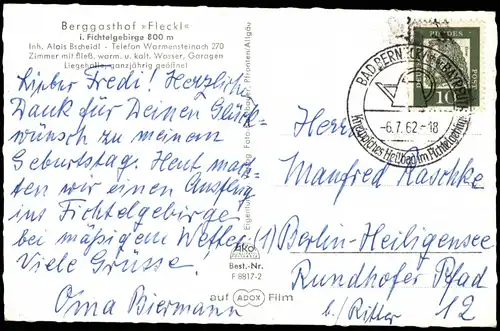 Berggasthof »Fleckl«
i. Fichtelgebirge 800 m
Inh. Alois Bscheidl - Telefon Warmensteinach 270
Zimmer mit fließ. warm. u. kalt. Wasser, Garagen
Liegehalle, ganzjährig geöffnet
Lieber Fredi! Herzliche
Dank für Deinen Glück-
wunsch zu meinem
Geburtstag. Heut mach-
ten wir einen Ausflug
ins Fichtelgebirge
bei mäßigem Wetter.
Viele Grüsse.
Oma Biermann
Pfronten/Allgäu
Ako
Best.-Nr.
F 8817-2
auf ADOX Film
BAD BERNECK
-6.7.62-18
Kneippsches Heilbad im Fichtelgebirge
Herrn
Manfred Raschke
(1) Berlin-Heiligensee
Rundhofer Pfad
b/ Ritter 12